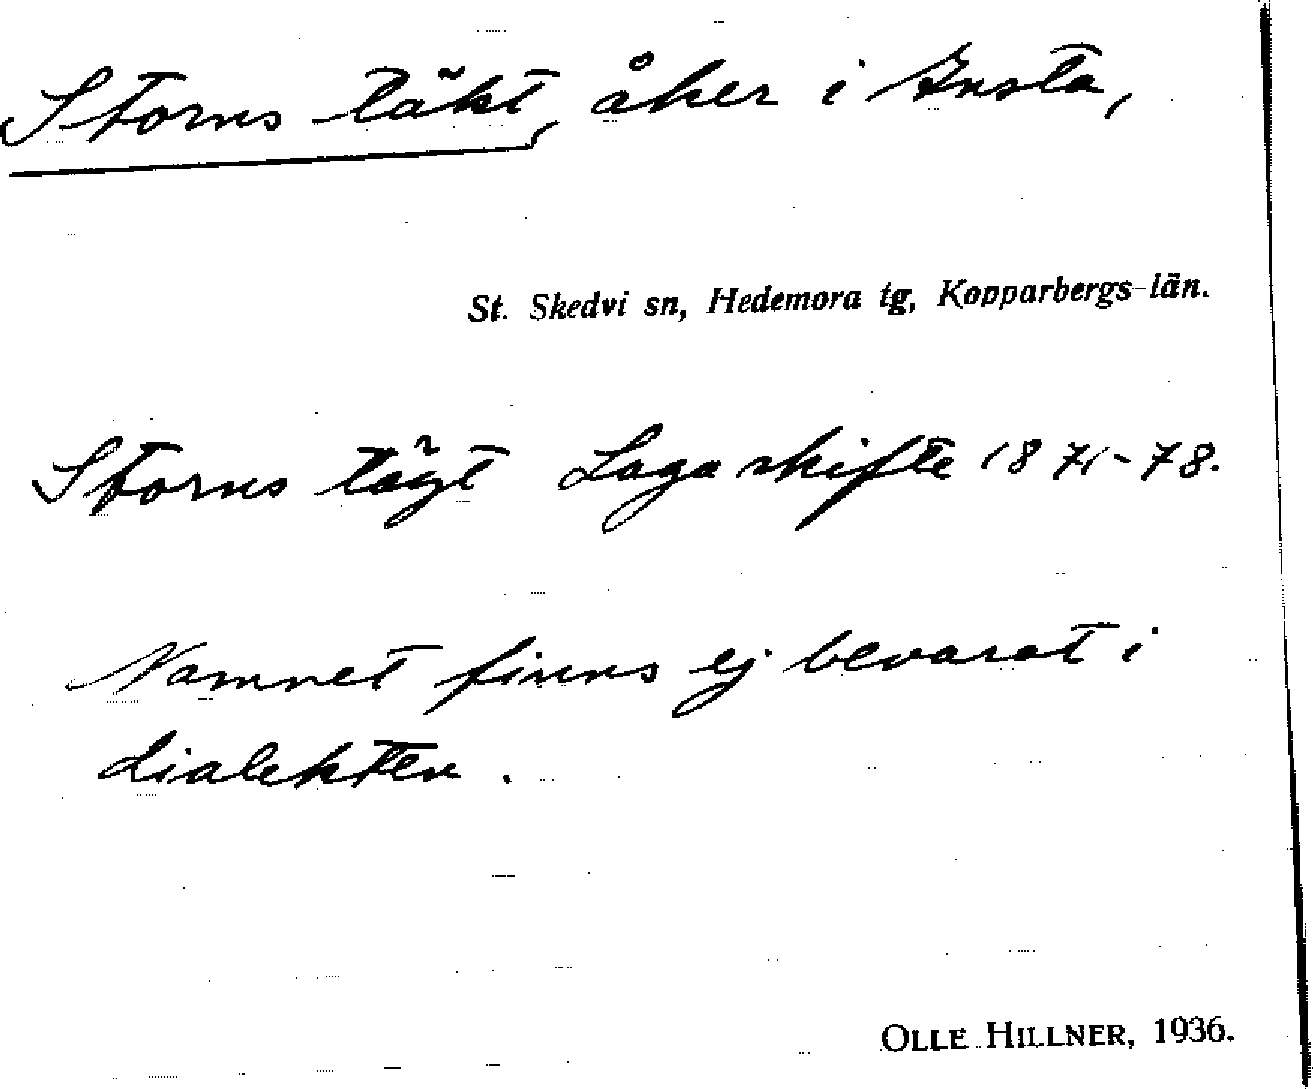 Storns täkt, åker i Insta,
St. Skedvi sn, Hedemora tg, Kopparbergs län.
Storns tägt Laga skifte 1871-78.
Namnet finns ej bevarat i
dialekten.
OLLE HILLNER, 1936.